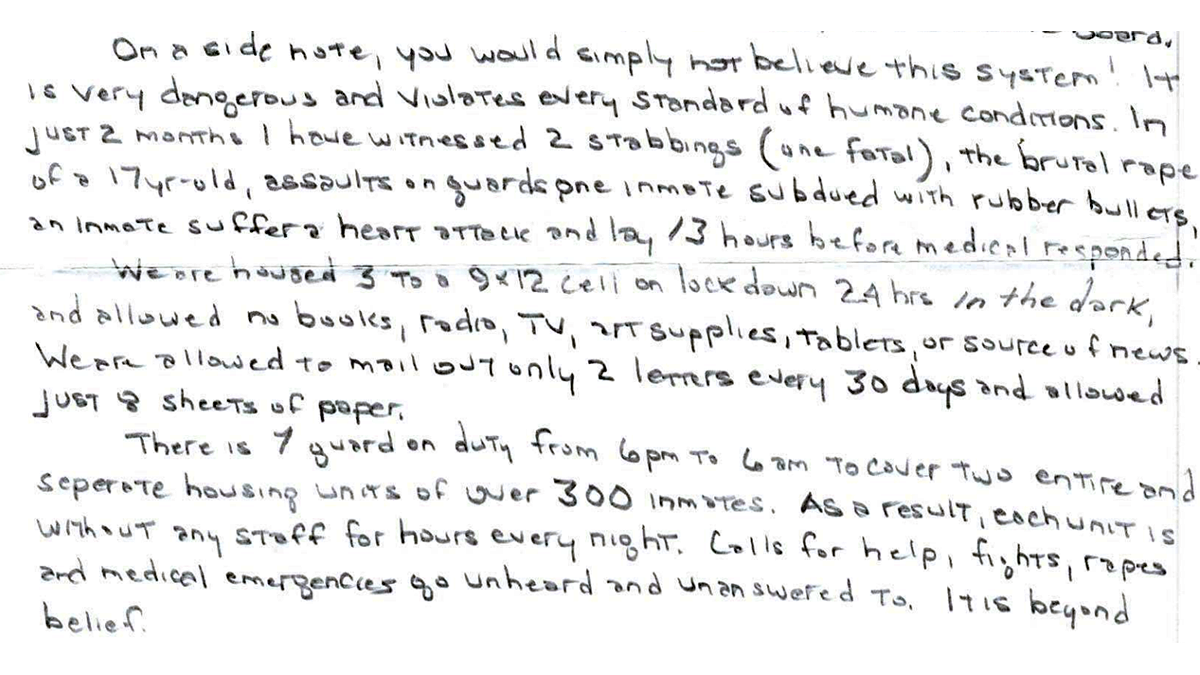 Board,
On a side note, you would simply not believe this system! It
is very dangerous and violates every standard of humane conditions. In
just 2 months I have witnessed 2 stabbings (one fatal), the brutal rape
of a 17yr-old, assaults on guards, one inmate subdued with rubber bullets,
an inmate suffer a heart attack and lay 13 hours before medical responded.
We are housed 3 to a 9x12 cell on lock down 24 hrs in the dark,
and allowed no books, radio, TV, art supplies, tablets, or source of news.
We are allowed to mail out only 2 letters every 30 days and allowed
just 8 sheets of paper.
There is 1 guard on duty from 6pm to 6am to cover two entire and
seperate housing units of over 300 inmates. As a result, each unit is
without any staff for hours every night. Calls for help, fights, rapes
and medical emergencies go unheard and unanswered to. It is beyond
belief.